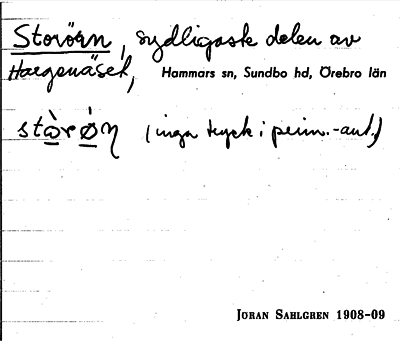 Storörn, sydligaste delen av
Hargenäset, Hammars sn, Sundbo hd, Örebro län
stòrǿn (inga tryck i prim.-ant.)
Joran Sahlgren 1908-09